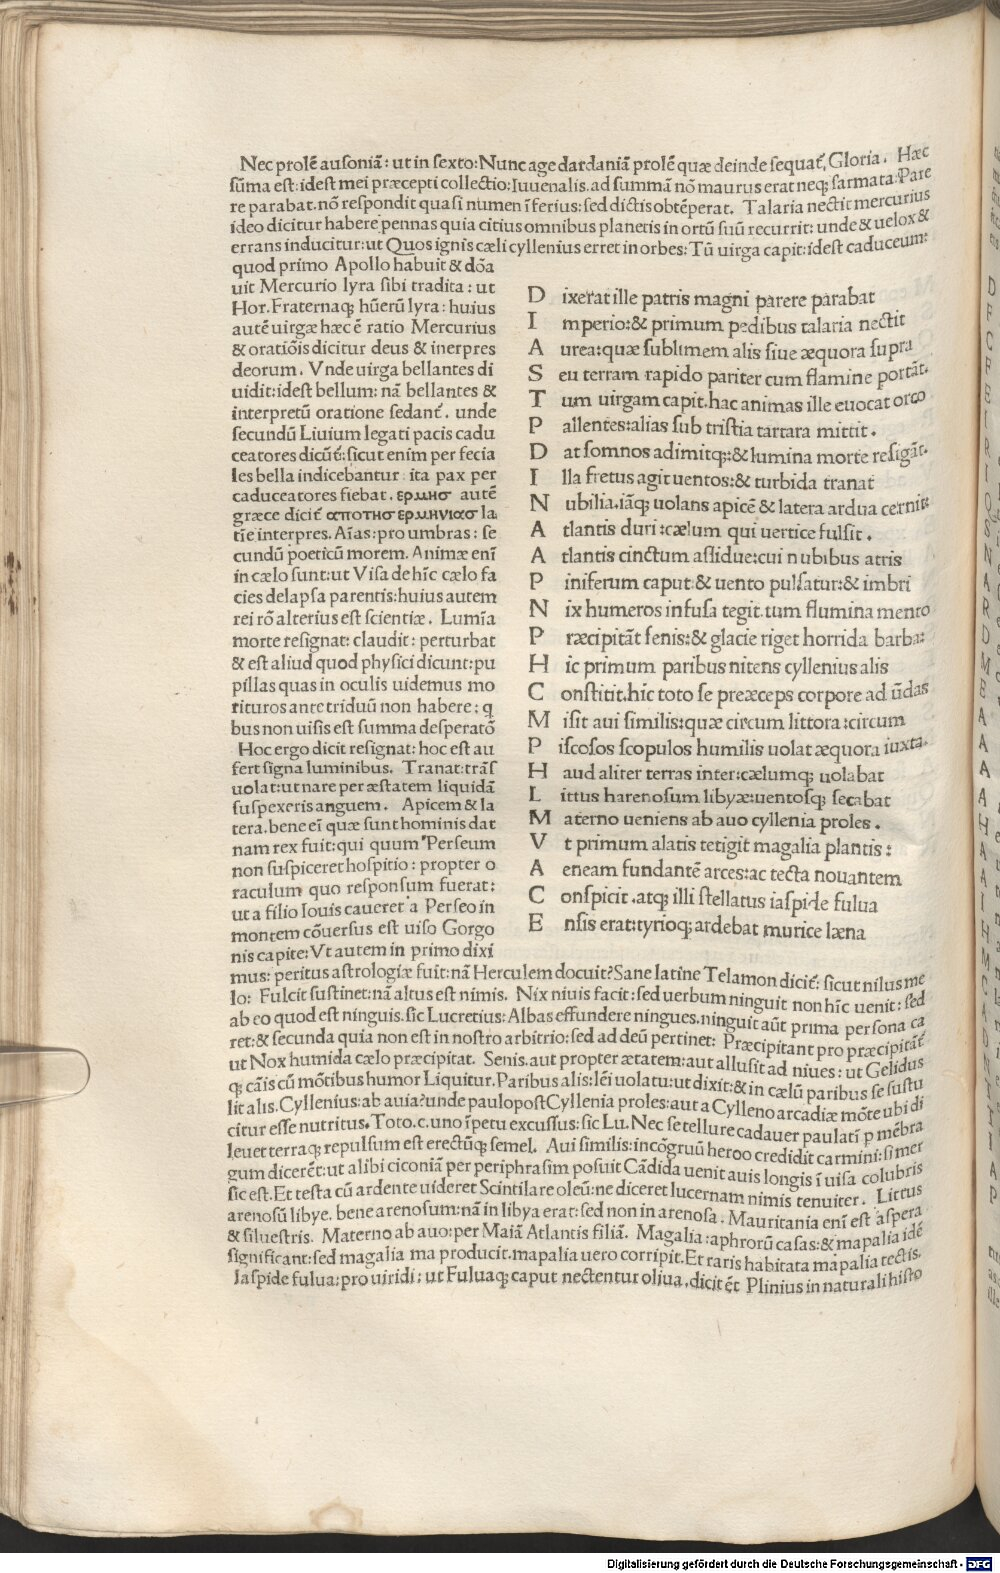 Nec prolē ausoniā: ut in sexto: Nunc age dardaniā prolē quæ deinde sequat̃, Gloria. Hæc
sūma est: idest mei præcepti collectio: Iuuenalis. ad summā nō maurus erat neq; sarmata. Pare
re parabat. nō respondit quasi numen īferius: sed dictis obtēperat. Talaria nectit mercurius
ideo dicitur habere pennas quia citius omnibus planetis in ortū suū recurrit: unde & uelox &
errans inducitur: ut Quos ignis cæli cyllenius erret in orbes: Tū uirga capit: idest caduceum:
quod primo Apollo habuit & dōa
uit Mercurio lyra sibi tradita: ut
Hor. Fraternaq; hūerū lyra: huius
autē uirgæ hæc ē ratio Mercurius
& oratiōis dicitur deus & inerpres
deorum. Vnde uirga bellantes di
uidit: idest bellum: nā bellantes &
interpretū oratione sedant̃. unde
secundū Liuium legati pacis cadu
ceatores dicūt̃: sicut enim per fecia
les bella indicebantur ita pax per
caduceatores fiebat. ερμησ autē
græce dicit̃ αποτησ ερμηνιασ la
tīe interpres. Aīas: pro umbras: se
cundū poeticū morem. Animæ enī
in cælo sunt: ut Visa de hīc cælo fa
cies delapsa parentis: huius autem
rei rō alterius est scientiæ. Lumīa
morte resignat: claudit: perturbat
& est aliud quod physici dicunt: pu
pillas quas in oculis uidemus mo
rituros ante triduū non habere: q
bus non uisis est summa desperatō
Hoc ergo dicit resignat: hoc est au
fert signa luminibus. Tranat: trās
uolat: ut nare per æstatem liquidā
suspexeris anguem. Apicem & la
tera. bene eī quæ sunt hominis dat
nam rex fuit: qui quum Perseum
non suspiceret hospitio: propter o
raculum quo responsum fuerat:
ut a filio Iouis caueret a Perseo in
montem cōuersus est uiso Gorgo
nis capite: Vt autem in primo dixi
D ixerat ille patris magni parere parabat
I mperio: & primum pedibus talaria nectit
A urea: quæ sublimem alis siue æquora supra
S eu terram rapido pariter cum flamine portāt.
T um uirgam capit. hac animas ille euocat orco
P allentes: alias sub tristia tartara mittit.
D at somnos adimitq;: & lumina morte resigāt.
I lla fretus agit uentos: & turbida tranat
N ubilia. iāq; uolans apicē & latera ardua cernit:
A tlantis duri: cælum qui uertice fulsit.
A tlantis cinctum assidue: cui nubibus atris
P iniferum caput: & uento pulsatur: & imbri
N ix humeros infusa tegit. tum flumina mento
P ræcipitāt senis: & glacie riget horrida barba:
H ic primum paribus nitens cyllenius alis
C onstitit. hīc toto se preæceps corpore ad ūdas
M isit aui similis: quæ circum littora: circum
P iscosos scopulos humilis uolat æquora iuxta.
H aud aliter terras inter: cælumq; uolabat
L ittus harenosum libyæ: uentosq; secabat
M aterno ueniens ab auo cyllenia proles.
V t primum alatis tetigit magalia plantis:
A eneam fundantē arces: ac tecta nouantem
C onspicit. atq; illi stellatus iaspide fulua
E nsis erat: tyrioq; ardebat murice læna
mus: peritus astrologiæ fuit: nā Herculem docuit? Sane latine Telamon dicit̃: sicut nilus me
lo: Fulcit sustinet: nā altus est nimis. Nix niuis facit: sed uerbum ninguit non hīc uenit: sed
ab eo quod est ninguis. sic Lucretius: Albas effundere ningues. ninguit aūt prima persona ca
ret: & secunda quia non est in nostro arbitrio: sed ad deū pertinet: Præcipitant pro præcipitāt̃
ut Nox humida cælo præcipitat. Senis. aut propter ætatem: aut allusit ad niues: ut Gelidus
q; cāis cū mōtibus humor Liquitur. Paribus alis: lēi uolatu: ut dixit: & in cælū paribus se sustu
lit alis. Cyllenius: ab auia? unde paulopost Cyllenia proles: aut a Cylleno arcadiæ mōte ubi di
citur esse nutritus. Toto. c. uno īpetu excussus: sic Lu. Nec se tellure cadauer paulatī p mēbra
leuet terraq; repulsum est erectūq; semel. Aui similis: incōgruū heroo credidit carmini: si mer
gum dicerēt: ut alibi ciconiā per periphrasim posuit Cādida uenit auis longis ī uisa colubris
sic est. Et testa cū ardente uideret Scintilare oleū: ne diceret lucernam nimis tenuiter. Littus
arenosū libye. bene arenosum: nā in libya erat: sed non in arenosa. Mauritania enī est aspera
& siluestris. Materno ab auo: per Maiā Atlantis filiā. Magalia: aphrorū casas: & mapalia idē
significant: sed magalia ma producit. mapalia uero corripit. Et raris habitata mapalia tectis.
Iaspide fulua: pro uiridi: ut Fuluaq; caput nectentur oliua. dicit ēt Plinius in naturali histo
Digitalisierung gefördert durch die Deutsche Forschungsgemeinschaft - DFG